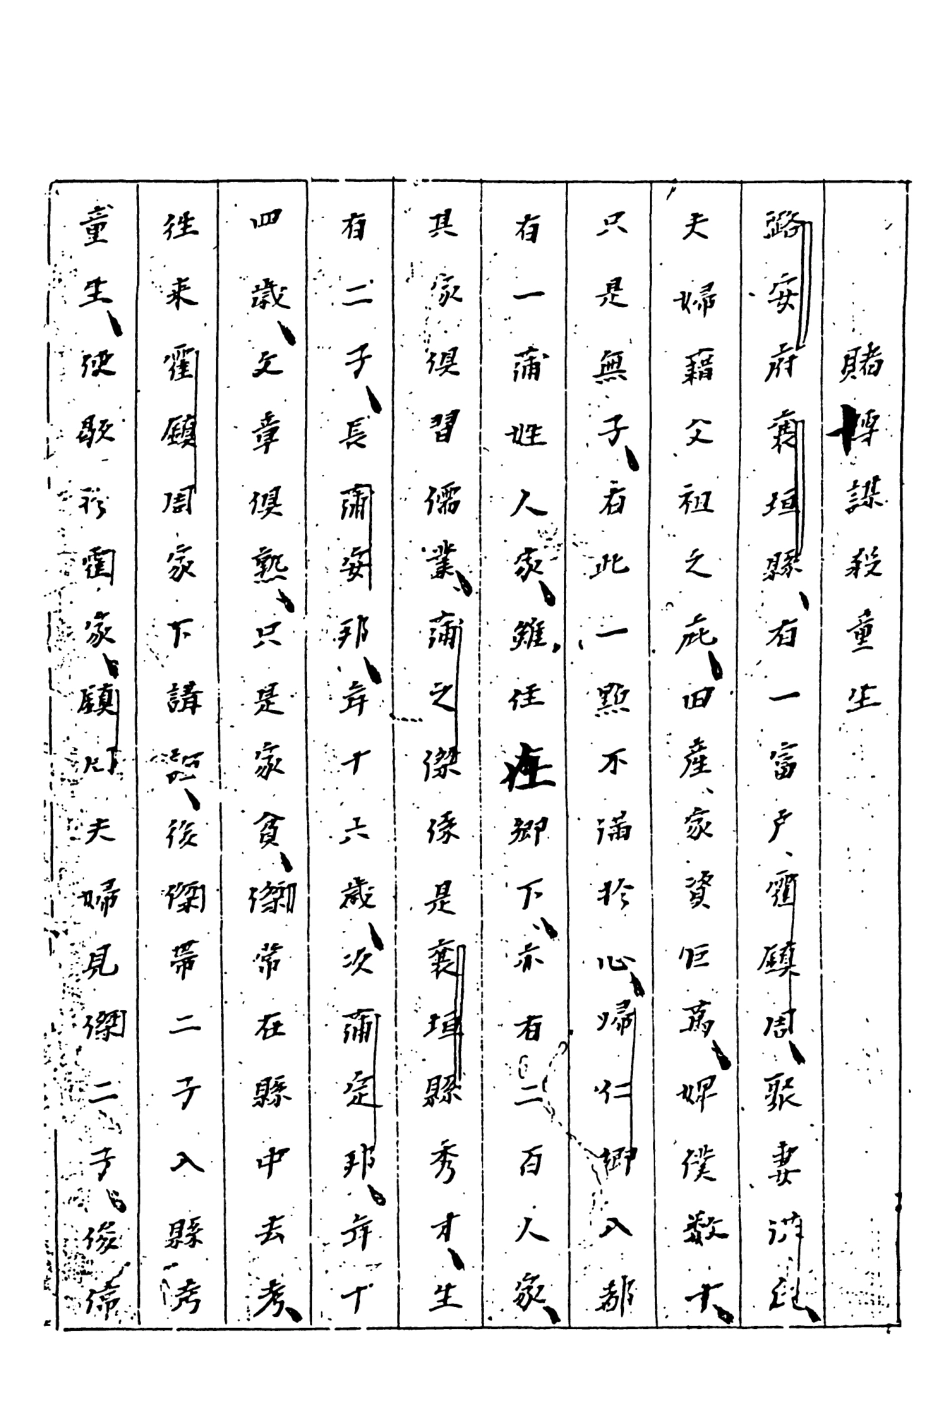 賭博謀殺童生
潞安府襄垣縣、有一富戶、霍鎮周、聚妻汪氏、
夫婦藉父祖之庇、田產、家資巨萬、婢僕數十、
只是無子、有此一點不滿於心、歸仁鄉八都
有一蒲姓人家、雖住在鄉下、亦有二百人家、
其家俱習儒業、蒲之傑係是襄垣縣秀才、生
有二子、長蒲安邦、年十六歲、次蒲定邦、年十
四歲、文章俱熟、只是家貧、傑常在縣中去考、
往來霍鎮周家下講 、後傑帶二子入縣考
童生、便歇於霍家、鎮周夫婦見傑二子、俊偉